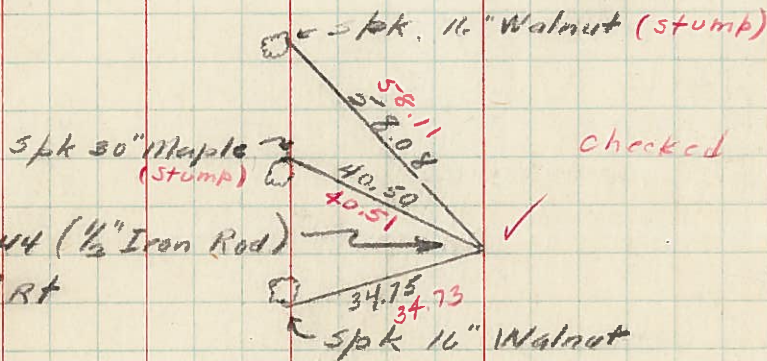 Spk. 16" Walnut (stump)
58.11
58.08
checked
Spk 30" Maple
(stump)
40.50
40.51
44 (1/2" Iron Rod)
Rt
34.75
34.73
Spk 16" Walnut